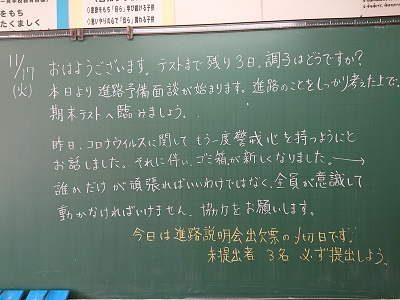 をもち
たくましく
◇意欲をもち「自ら」学び続ける子供
◇思いやりの心で「自ら」関わる子供
11/17
(火)
おはようございます。テストまで残り3日。調子はどうですか?
本日より進路予備面談が始まります。進路のことをしっかり考えた上で、
期末テストへ臨みましょう。
昨日、コロナウイルスに関してもう一度警戒心を持つようにと
お話しました。それに伴い、ゴミ箱が新しくなりました。→
誰かだけが頑張ればいいわけではなく、全員が意識して
動かなければいけません。協力をお願いします。
今日は進路説明会出欠票の〆切日です。
未提出者 3名 必ず提出しよう。